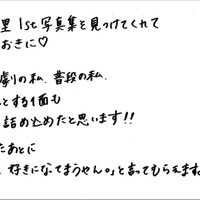 里 1st写真集を見つけてくれて
おきに♡
劇の私、普段の私、
とする1面も
詰め込めたと思います!!
たあとに
好きになってまうやん。」と言ってもらえますよ